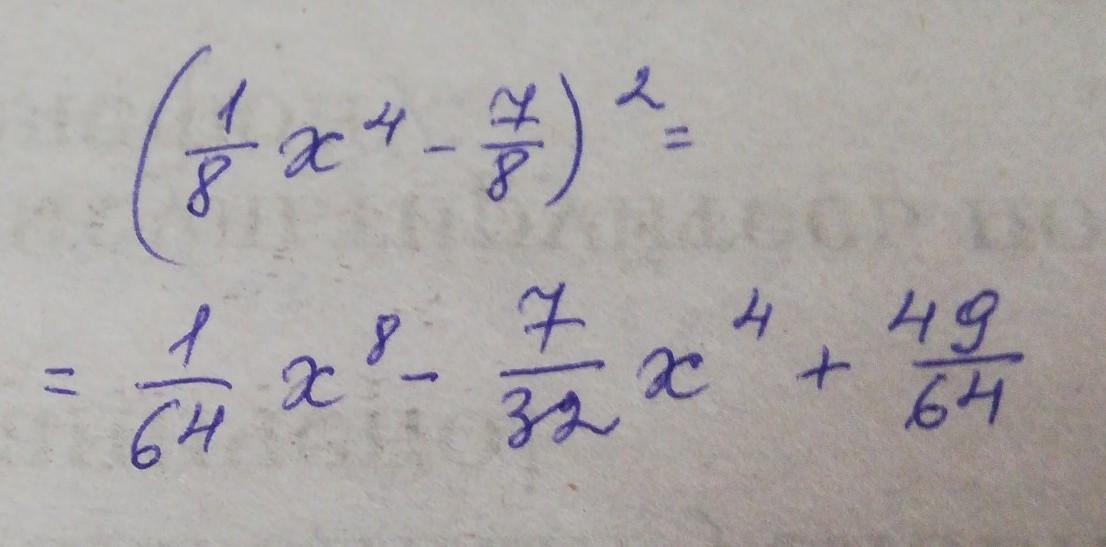 (1/8 x⁴ - 7/8)² =
= 1/64 x⁸ - 7/32 x⁴ + 49/64